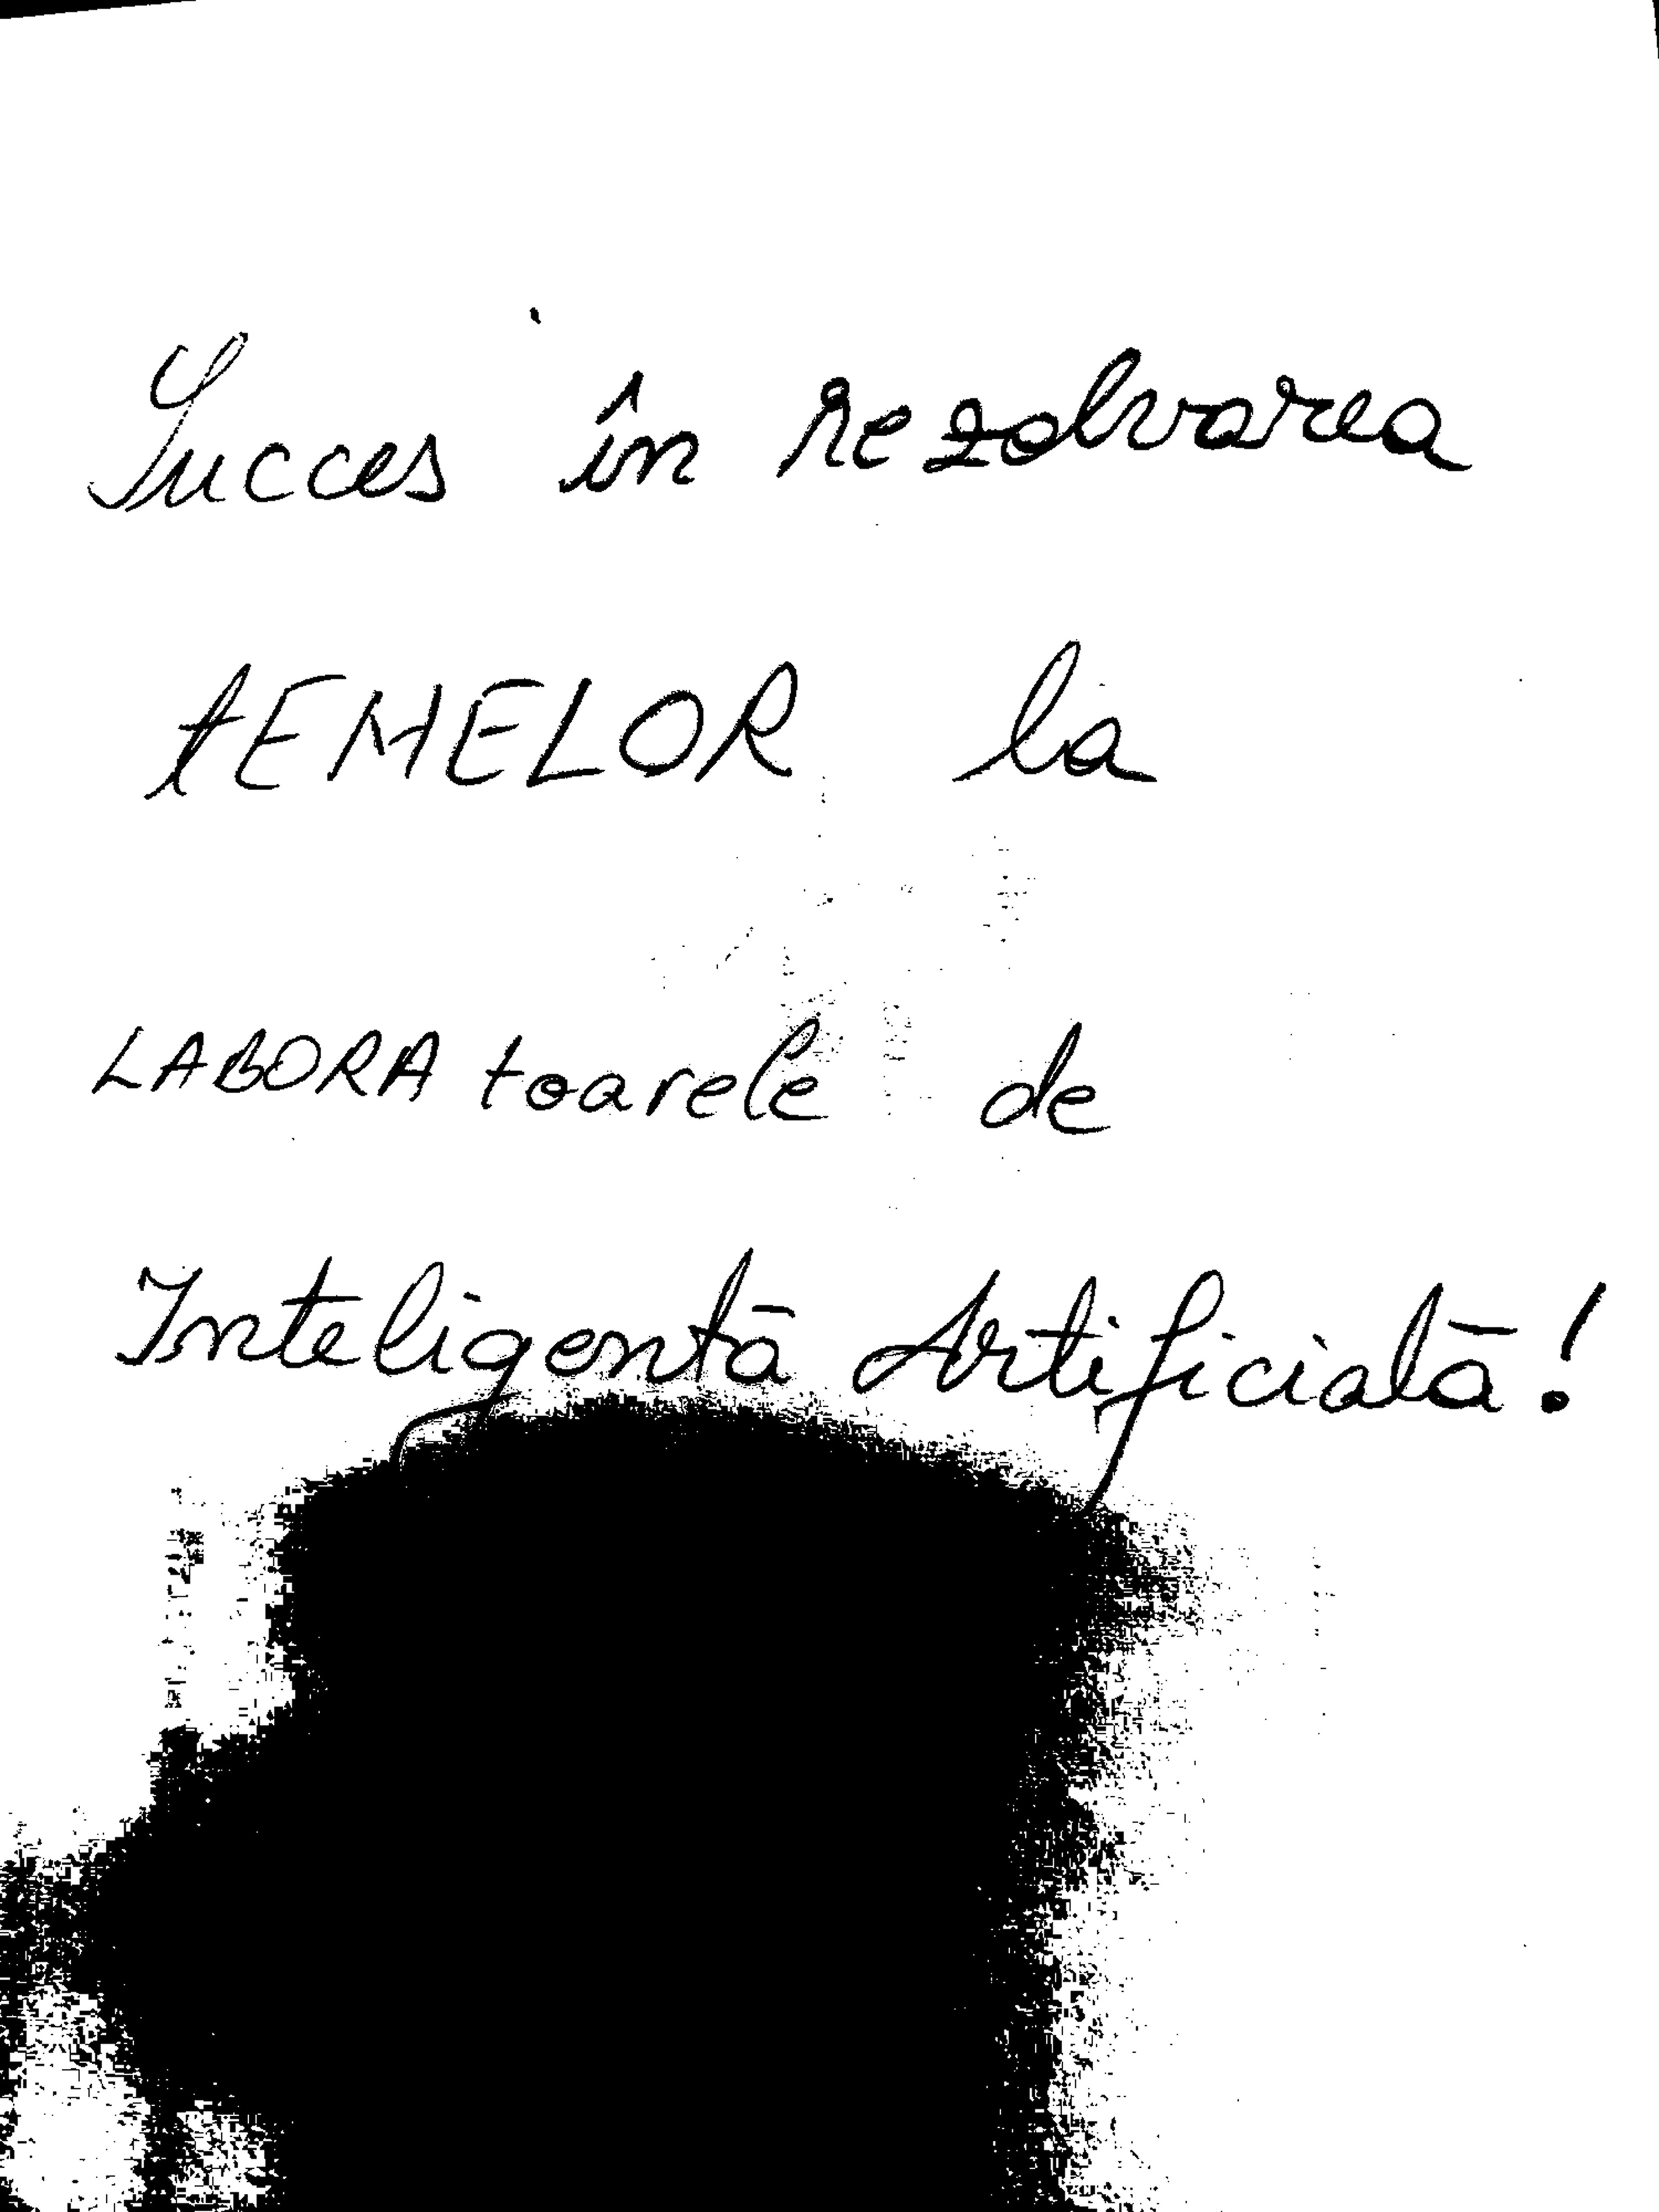 Succes în rezolvarea
tEMELOR la
LABORA toarele de
Inteligentă Artificială!